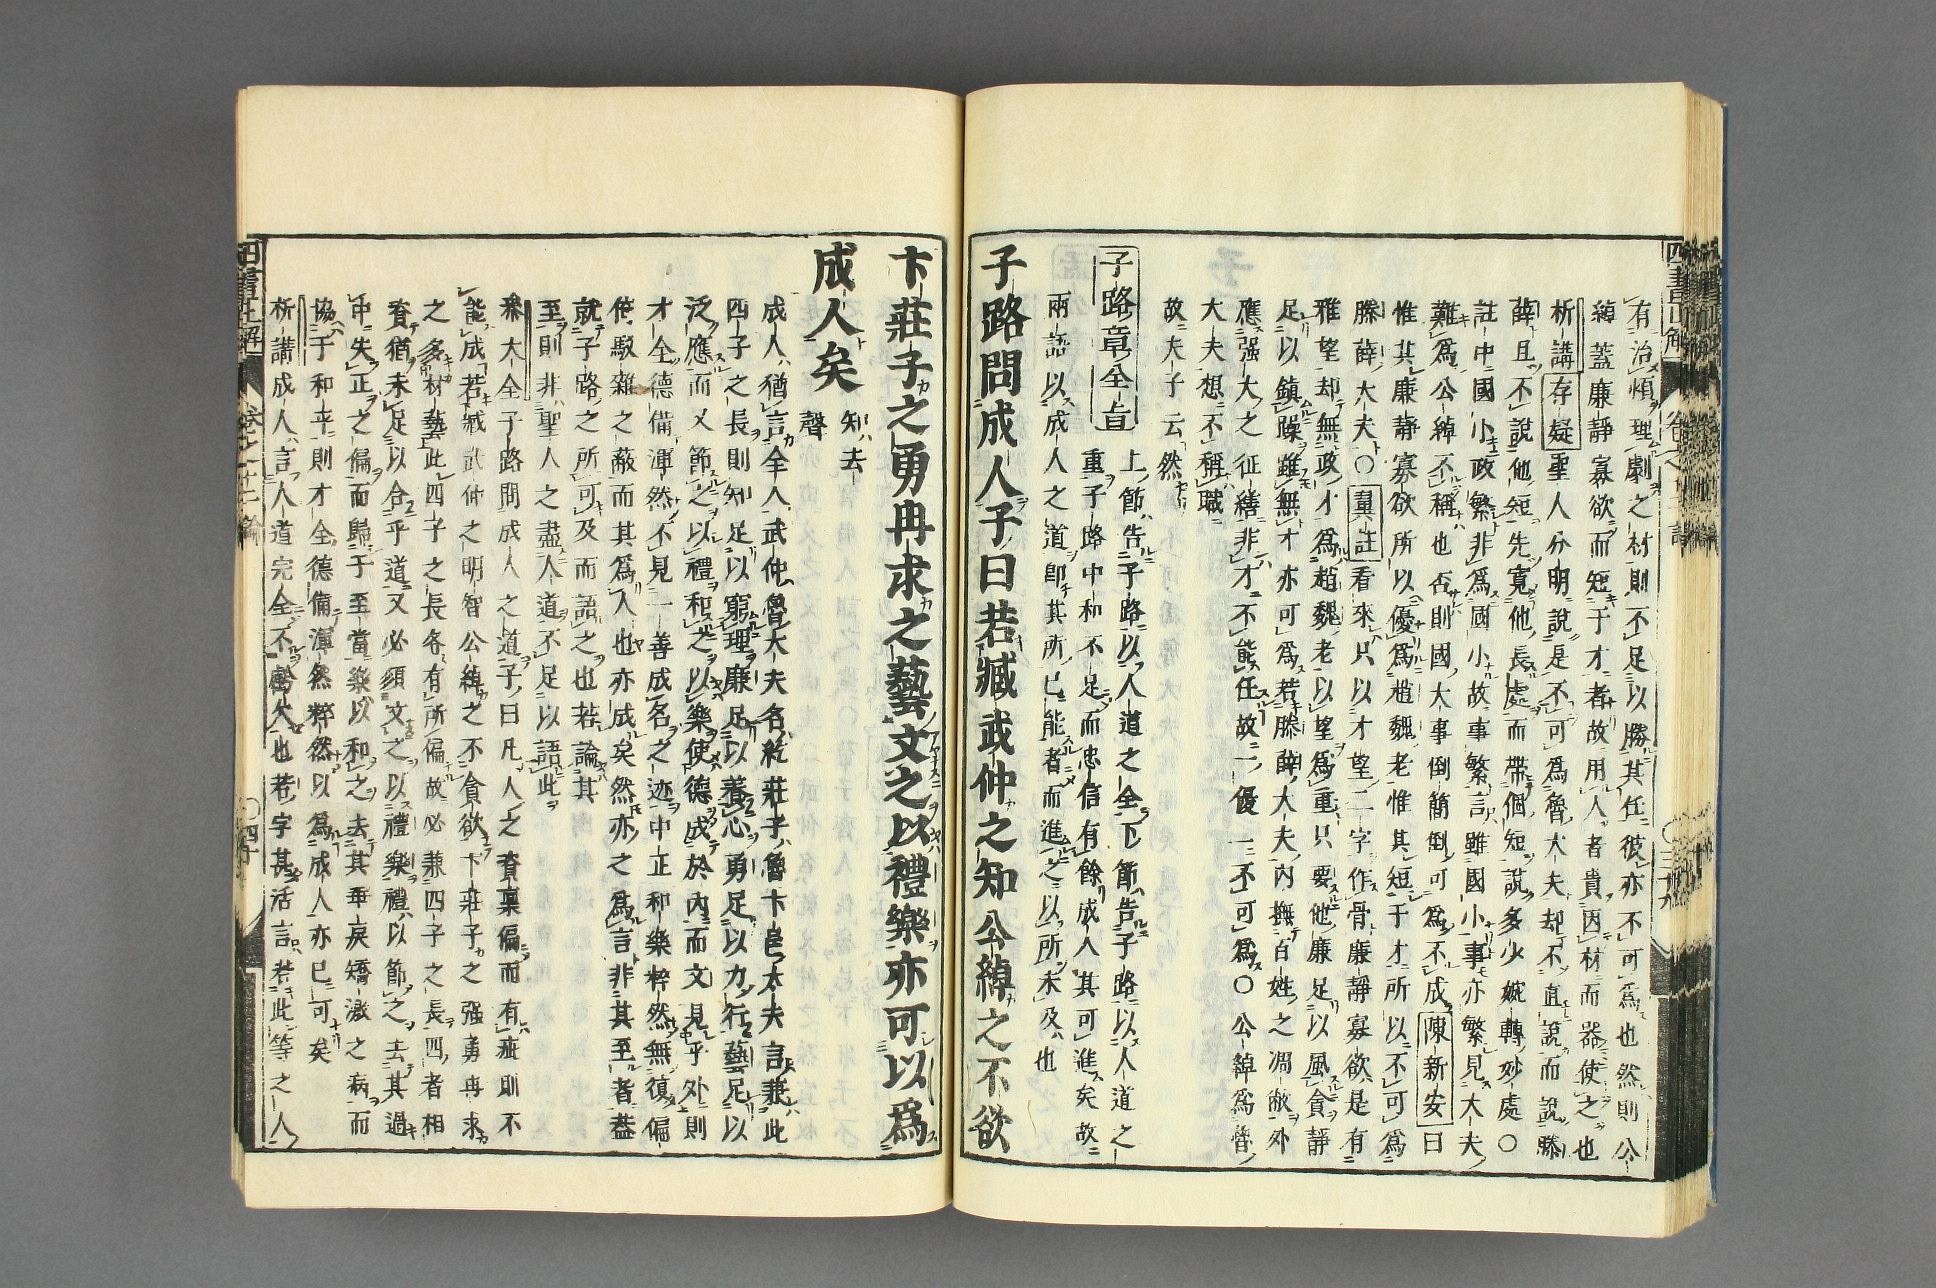 有治煩理劇之材則不足以勝其任彼亦不可為也然則公
綽蓋廉靜寡欲而短于才者故用人者貴因材而器使之也
析講存疑聖人分明說是不可為魯大夫却不直說而說滕
薛且不說他短先寬他長處而帶個短說多少婉轉妙處○
註中國小政繁非為國小故事繁言雖國小事亦繁見大夫
難為公綽不稱也否則國大事倒簡倒可為不成陳新安曰
惟其廉靜寡欲所以優為趙魏老惟其短于才所以不可為
滕薛大夫○翼註看來只以才望二字作骨廉靜寡欲是有
雅望却無政才為趙魏老以望為重只要他廉足以風貪靜
足以鎮躁雖無才亦可為若滕薛大夫內撫百姓之凋敝外
應强大之征繕非才不能任故一優一不可為○公綽為魯
大夫想不稱職
故夫子云然
子路章全旨 上節告子路以人道之全下節告子路以人道之
重子路中和不足而忠信有餘成人其可進矣故
兩語以成人之道即其所已能者而進之以所未及也
子路問成人子曰若臧武仲之知公綽之不欲
卞莊子之勇冉求之藝文之以禮樂亦可以為
成人矣 知去聲
成人猶言全人武仲魯大夫名紇莊子魯卞邑大夫言兼此
四子之長則知足以窮理廉足以養心勇足以力行藝足以
泛應而又節之以禮和之以樂使德成於內而文見乎外則
才全德備渾然不見一善成名之迹中正和樂粹然無復偏
倚駁雜之蔽而其為人也亦成矣然亦之為言非其至者蓋
就子路之所可及而語之也若論其
至則非聖人之盡人道不足以語此
大全子路問成人之道子曰凡人之資稟偏而有疵則不
能成若臧武仲之明智公綽之不貪欲卞莊子之强勇冉求
之多材藝此四子之長各有所偏故必兼四子之長四者相
資猶未足以合乎道又必須文之以禮樂禮以節之去其過
中失正之偏而歸于至當樂以和之去其乖戾矯激之病而
協于和平則才全德備渾然粹然以為成人亦已可矣
析講成人言人道完全不虧欠也若字甚活言若此等之人